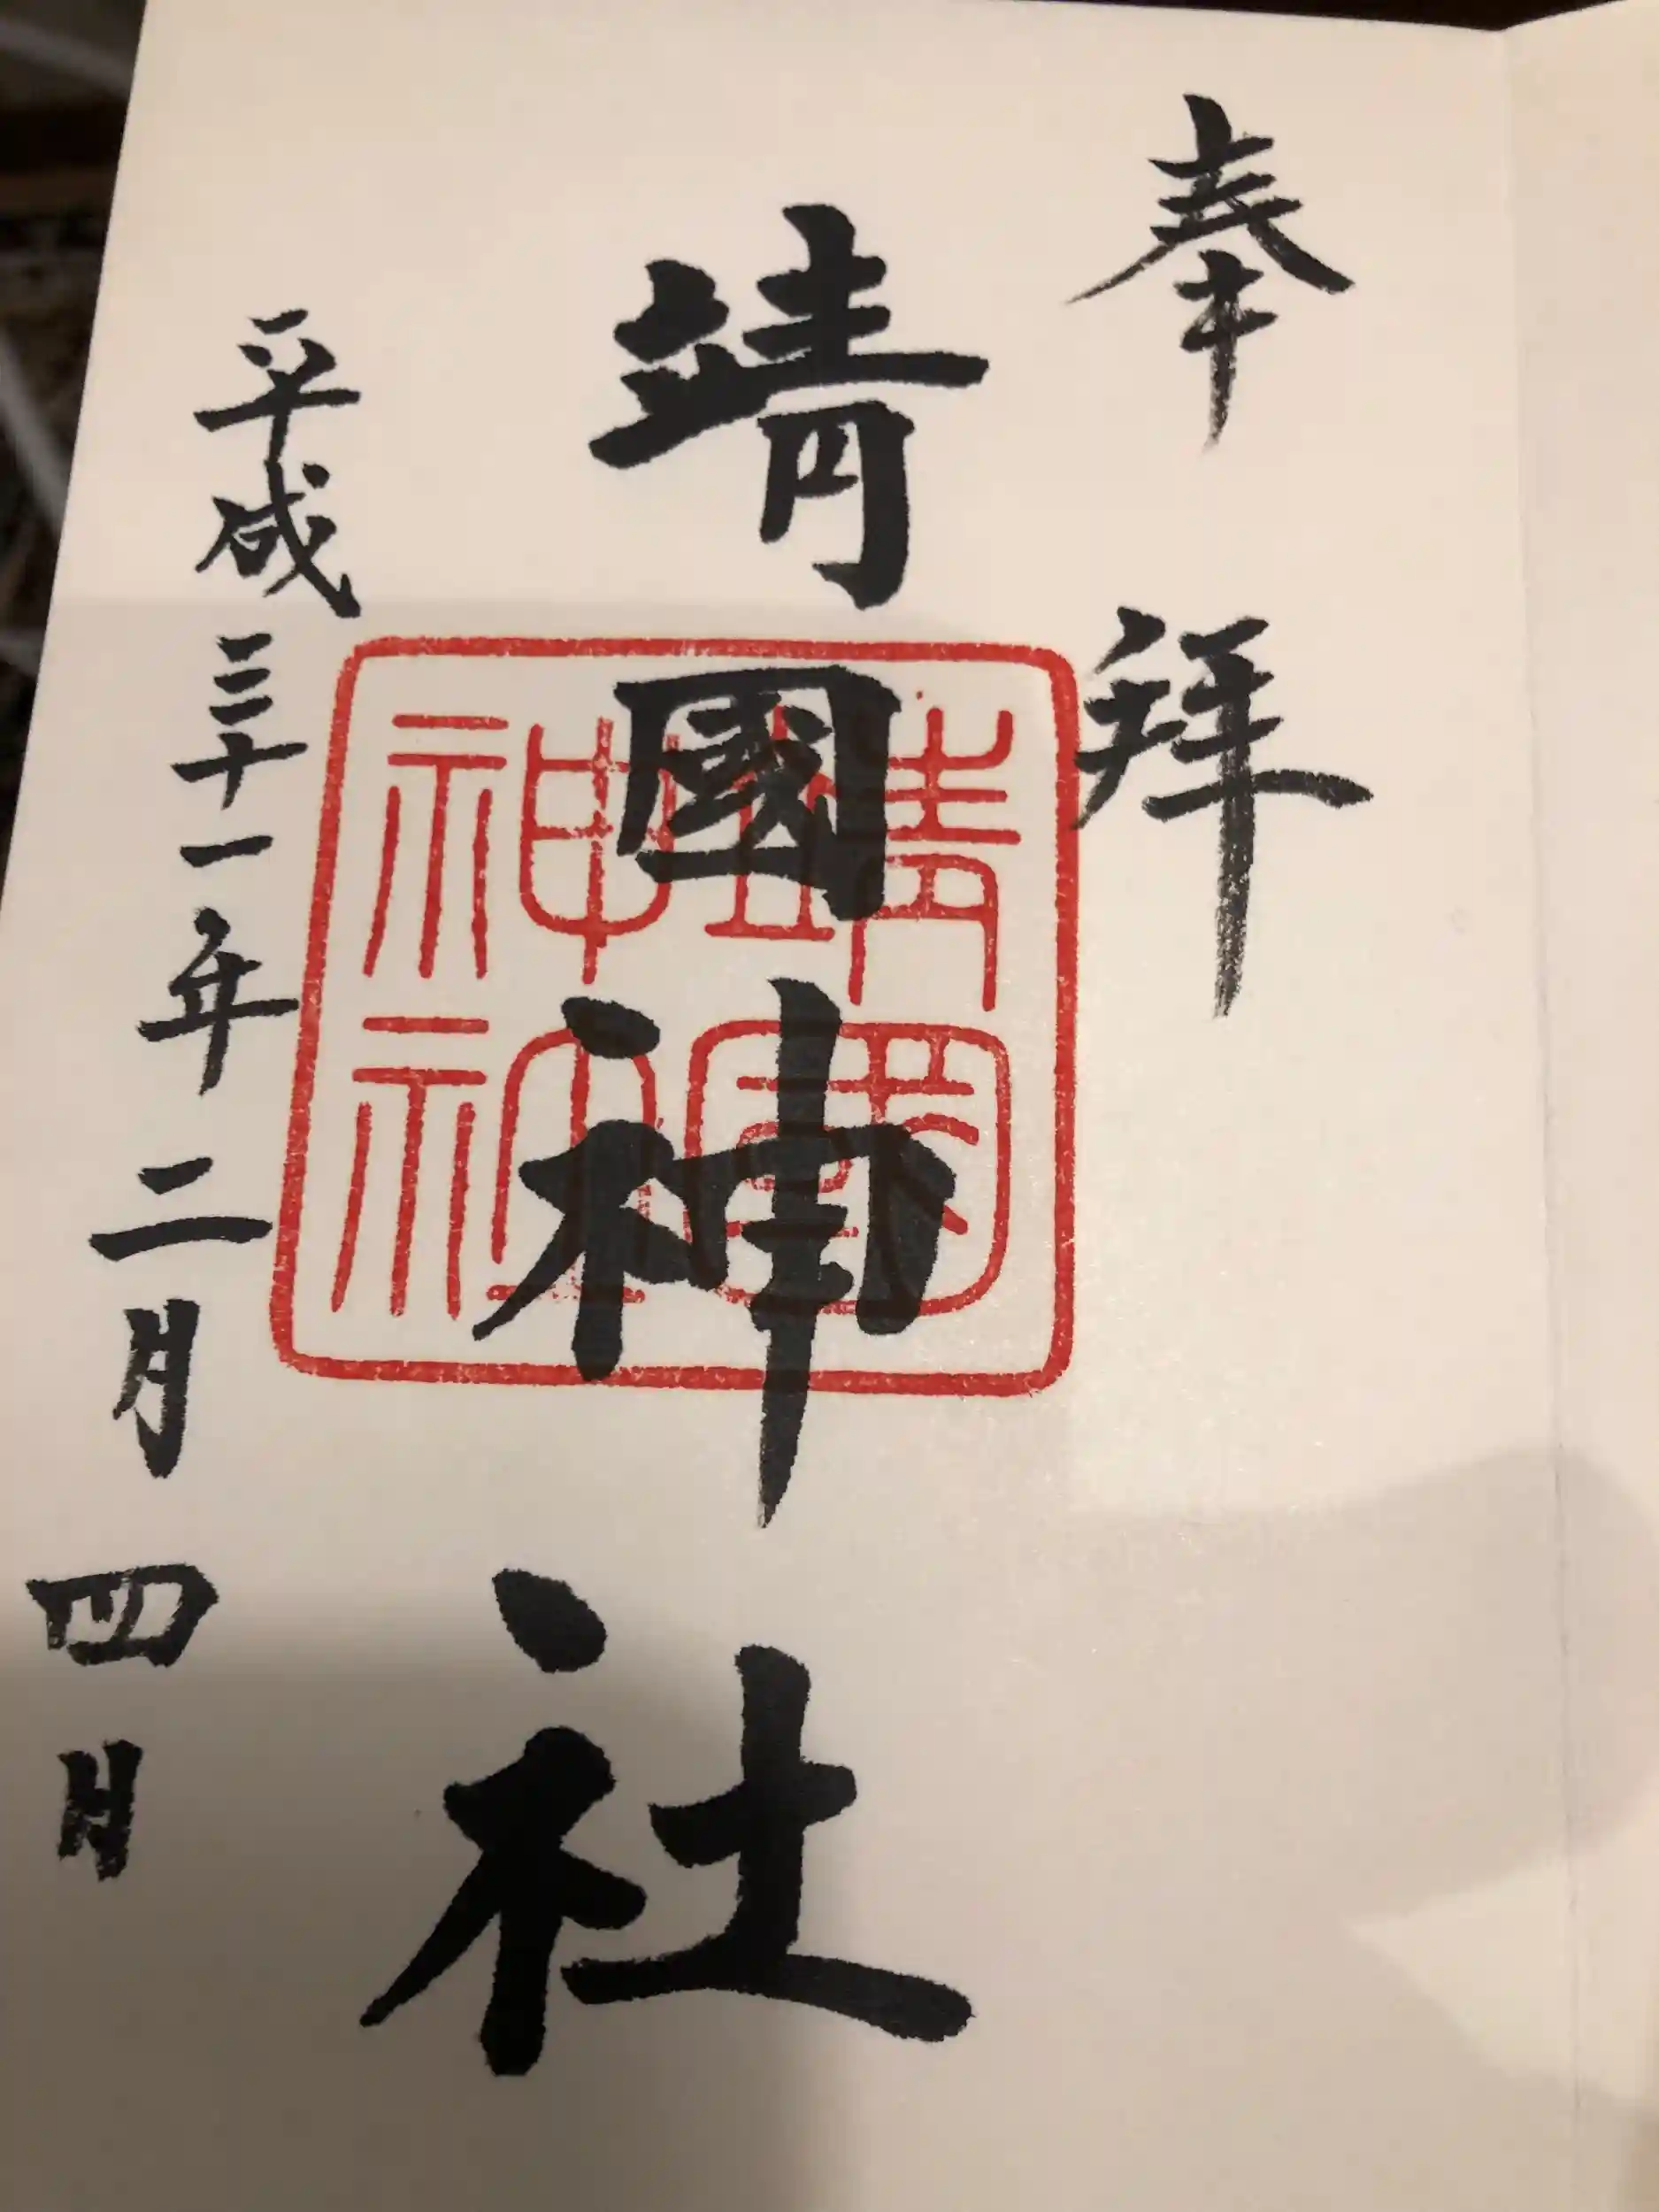 奉拝
靖國神社
靖國
神社
平成三十一年二月四日